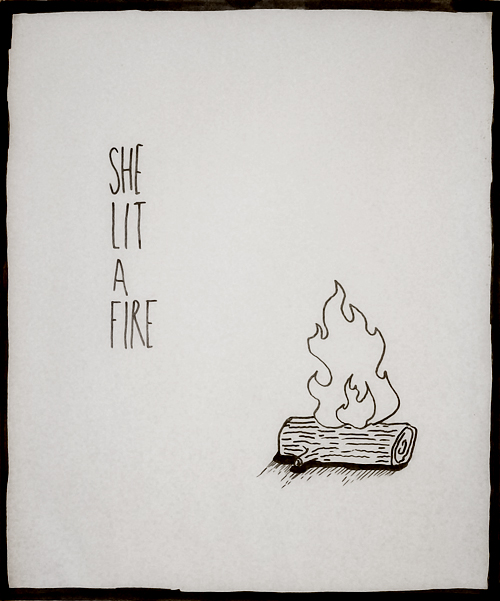 SHE
LIT
A
FIRE